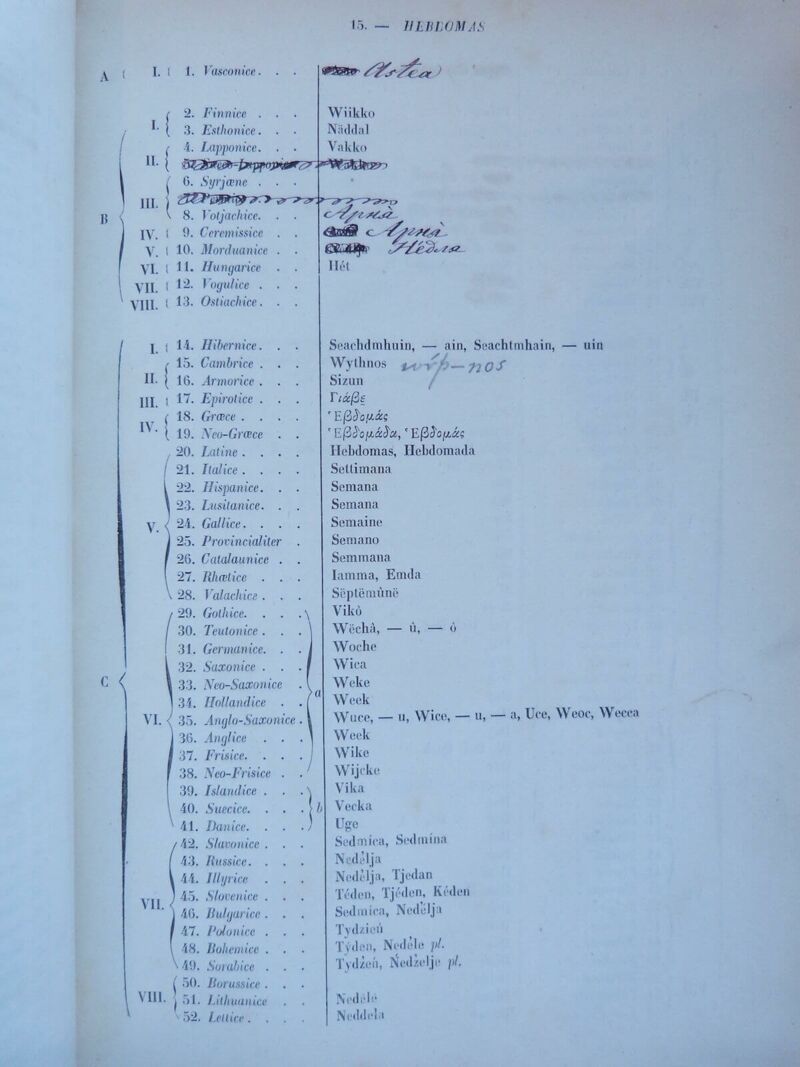 15. — HEBDOMAS
A I. 1. Vasconice. . . Astea
I. 2. Finnice . . . Wiikko
3. Esthonice. . . Näddal
II. 4. Lapponice. . . Vakko
III. 6. Syrjæne . . .
8. Votjachice. . . Арнà
B
IV. 9. Ceremissice . . Арнà
V. 10. Morduanice . . Недля
VI. 11. Hungarice . . Hét
VII. 12. Vogulice . . .
VIII. 13. Ostiachice. . .
I. 14. Hibernice. . . Seachdmhuin, — ain, Seachtmhain, — uin
II. 15. Cambrice . . . Wythnos wŷþ-nos
16. Armorice . . . Sizun
III. 17. Epirotice . . . Γιάβε
IV. 18. Græce . . . . Ἑβδομάς
19. Neo-Græce . . Ἑβδομάδα, Ἑβδομάς
20. Latine . . . . Hebdomas, Hebdomada
21. Italice . . . . Settimana
22. Hispanice. . . Semana
23. Lusitanice. . . Semana
V. 24. Gallice. . . . Semaine
25. Provincialiter . Semano
26. Catalaunice . . Semmana
27. Rhætice . . . Iamma, Emda
28. Valachice . . . Sëptëmûnë
29. Gothice. . . . Vikô
30. Teutonice . . . Wëchà, — ù, — ô
31. Germanice. . . Woche
32. Saxonice . . . Wica
C 33. Neo-Saxonice . a Weke
34. Hollandice . . Week
VI. 35. Anglo-Saxonice . Wuce, — u, Wice, — u, — a, Uce, Weoc, Wecca
36. Anglice . . . Week
37. Frisice. . . . Wike
38. Neo-Frisice . . Wijcke
39. Islandice . . . Vika
40. Suecice. . . . b Vecka
41. Danice. . . . Uge
42. Slavonice . . . Sedmica, Sedmina
43. Russice. . . . Nedělja
44. Illyrice . . . Nedělja, Tjedan
VII. 45. Slovenice . . . Téden, Tjéden, Kéden
46. Bulgarice . . . Sedmica, Nedělja
47. Polonice . . . Tydzień
48. Bohemice . . . Týden, Neděle pl.
49. Sorabice . . . Tydźeń, Ńedźelje pl.
50. Borussice . . .
VIII. 51. Lithuanice . . Nedéle
52. Lettice . . . . Neddela